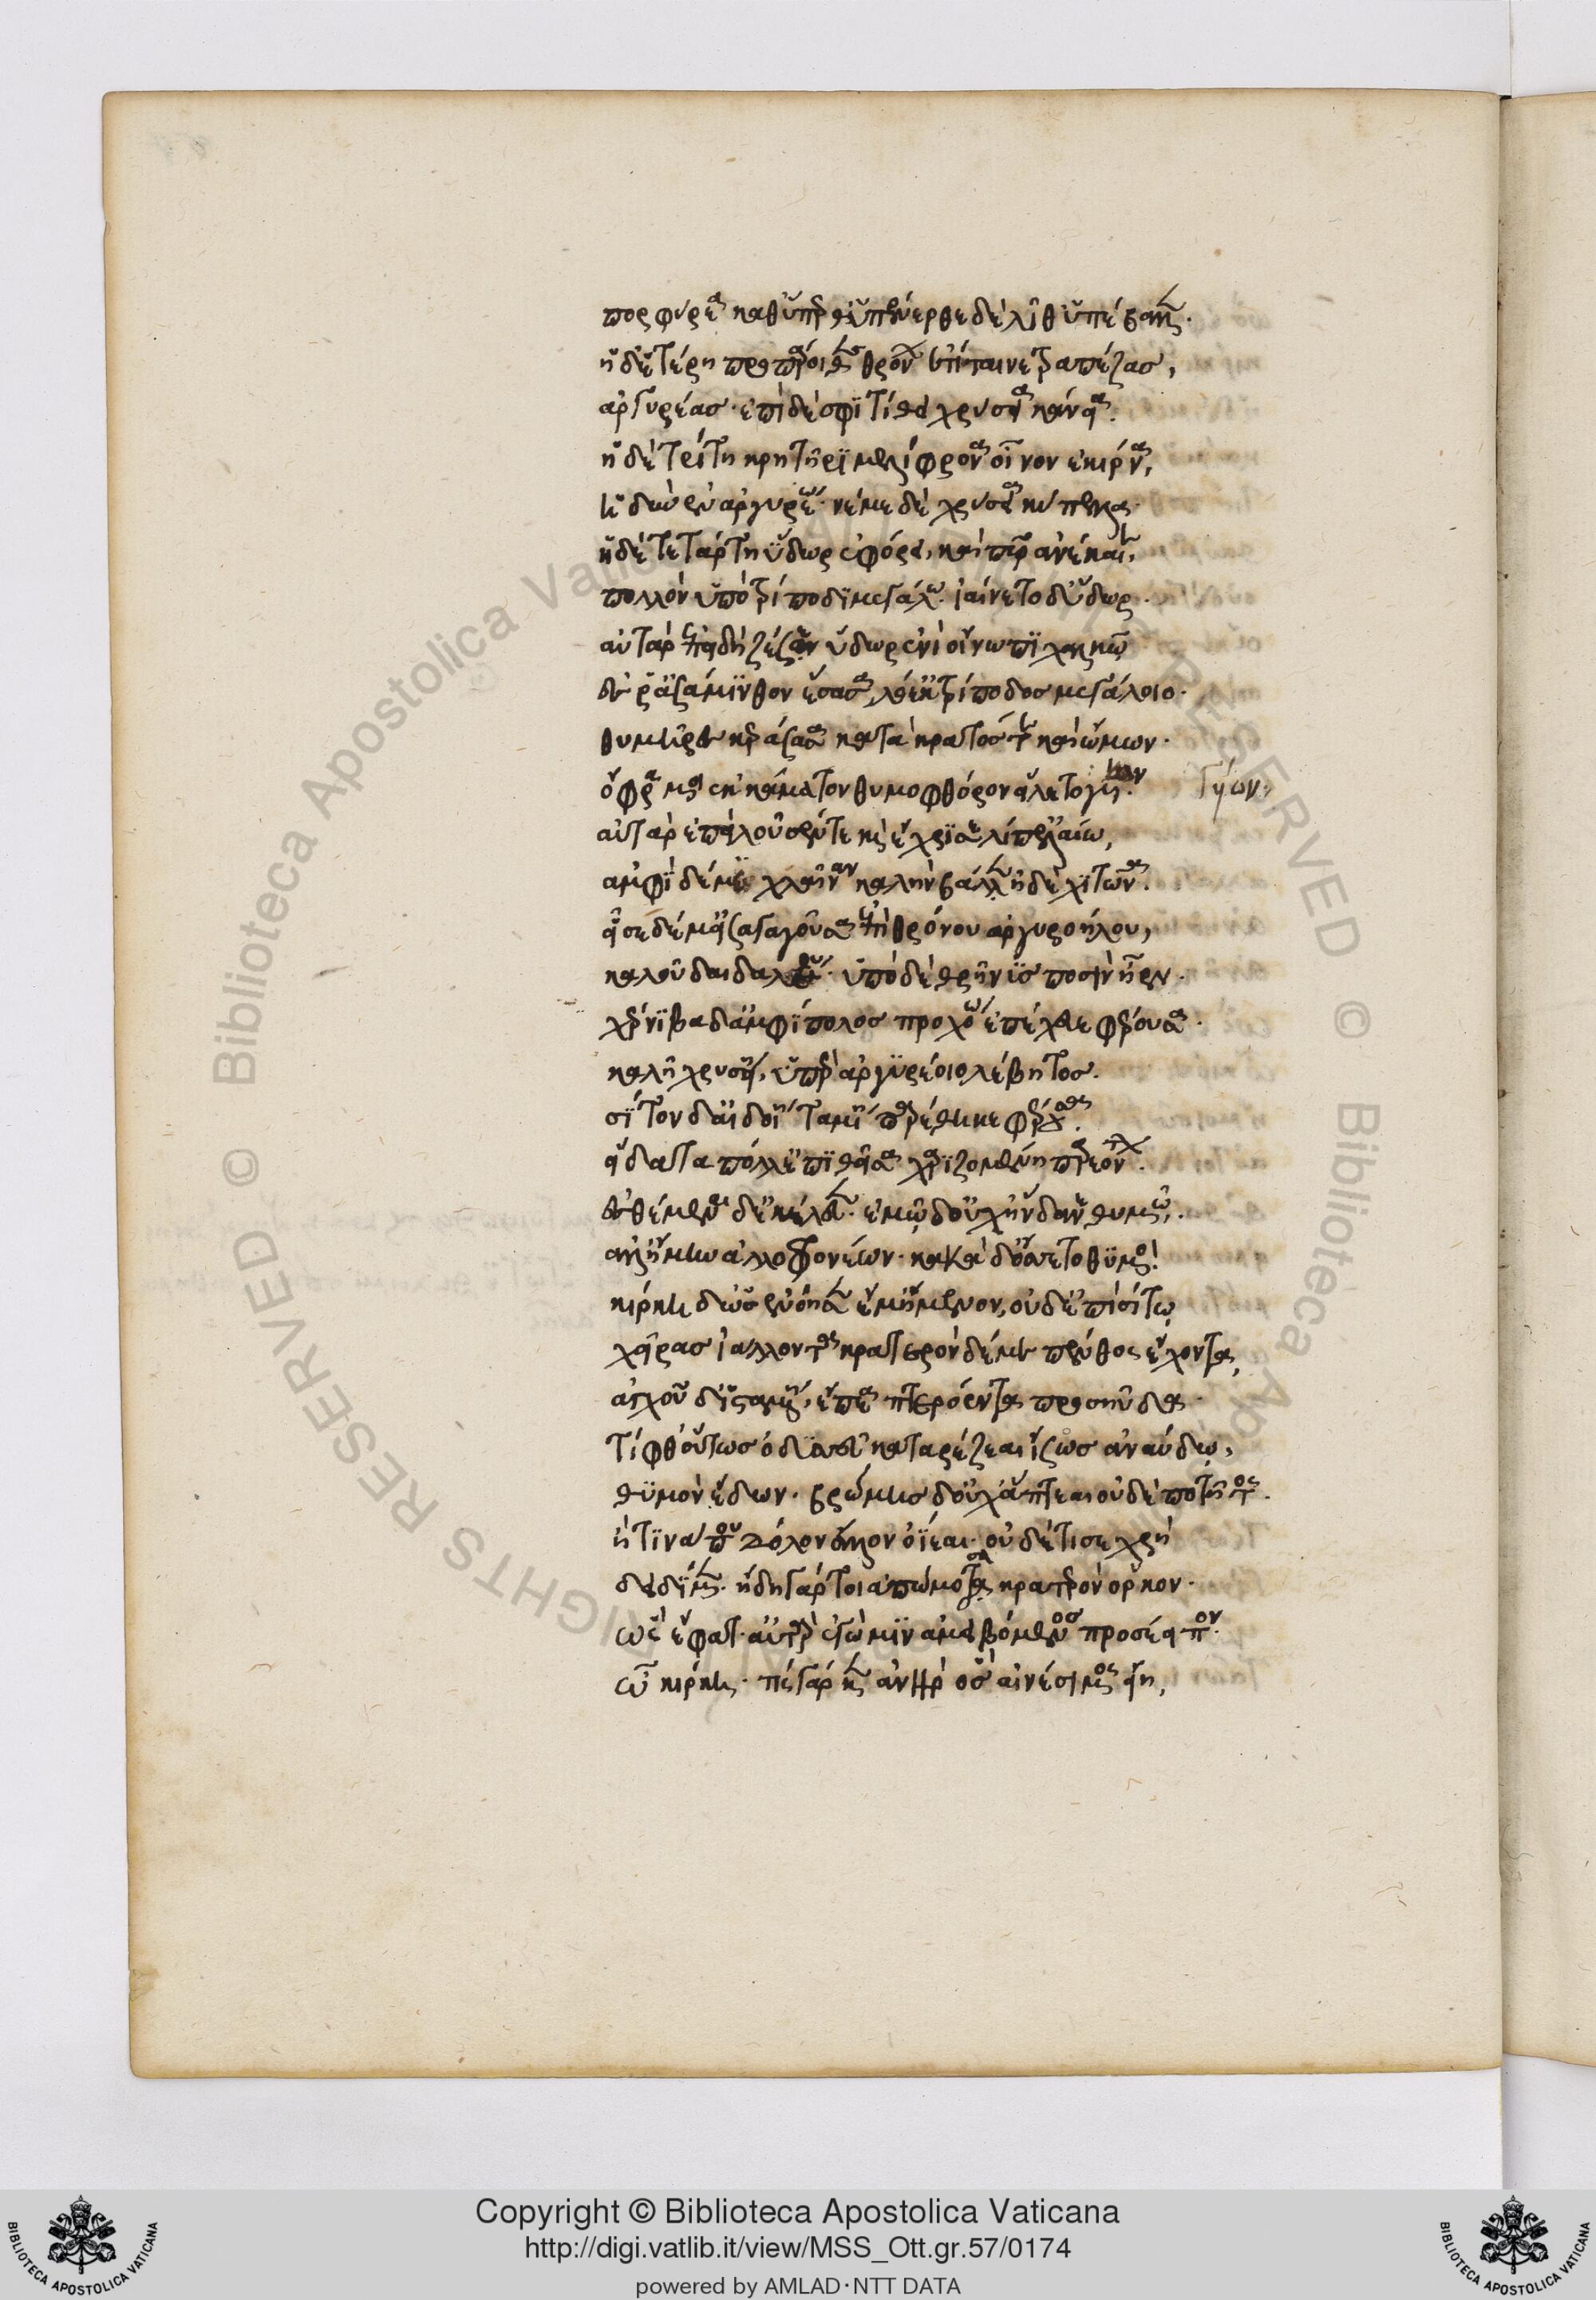 πορφύρεα καθύπερθ· ὑπένερθε δὲ λῖθ' ὑπέβαλλεν·
ἡ δ' ἑτέρη προπάροιθε θρόνων ἐτίταινε τραπέζας,
ἀργυρέας· ἐπὶ δέ σφι τίθει χρύσεια κάνεια.
ἡ δὲ τρίτη κρητῆρι μελίφρονα οἶνον ἐκίρνα,
ἡδὺν ἐν ἀργυρέω· νέμε δὲ χρύσεια κύπελλα·
ἡ δὲ τετάρτη ὕδωρ ἐφόρει, καὶ πῦρ ἀνέκαιε,
πολλὸν ὑπὸ τρίποδι μεγάλω· ἰαίνετο δ' ὕδωρ·
αὐτὰρ ἐπειδὴ ζέσσεν ὕδωρ ἐνὶ οἴνοπι χαλκῶ
ἔς ῥ' ἀσάμινθον ἕσασα, λό' ἐκ τρίποδος μεγάλοιο·
θυμῆρες κεράσασα κατὰ κρατός τε καὶ ὤμων·
ὄφρα μοι ἐκ κάματον θυμοφθόρον εἵλετο γυίων.
γυίων·
αὐτὰρ ἐπεὶ λοῦσέν τε καὶ ἔχρισεν λίπ' ἐλαίω,
ἀμφὶ δέ με χλαῖναν καλὴν βάλεν ἠδὲ χιτῶνα.
εἷσε δέ μ' εἰσαγαγοῦσα ἐπὶ θρόνου ἀργυροήλου,
καλοῦ δαιδαλέου· ὑπὸ δὲ θρῆνυς ποσὶν ἦεν·
χέρνιβα δ' ἀμφίπολος προχόω ἐπέχευε φέρουσα·
καλῆ χρυσείη, ὑπὲρ ἀργυρέοιο λέβητος.
σῖτον δ' αἰδοίη ταμίη παρέθηκε φέρουσα.
εἴδατα πόλλ' ἐπιθεῖσα χαριζομένη παρεόντων.
ἐσθέμεναι δ' ἐκέλευεν· ἐμῶ δ' οὐχ ἥνδανε θυμῶ.
ἀλλ' ἥμην ἀλλοφρονέων· κακὰ δ' ὄσσετο θυμός.
κίρκη δ' ὡς ἐνόησεν ἔμ' ἥμενον, οὐδ' ἐπὶ σίτω
χεῖρας ἰάλλοντα κρατερὸν δέ με πένθος ἔχοντα,
ἄγχου δ' ἱσταμένη, ἔπεα πτερόεντα προσηύδα·
τίφθ' οὕτως ὀδυσεῦ κατ' ἄρ' ἕζεαι ἶσος ἀναύδω,
θυμὸν ἔδων· βρώμης δ' οὐχ ἅπτεαι οὐδὲ ποτῆτος.
ἦ τινά που δόλον ἄλλον ὀΐεαι· οὐδέ τί σε χρὴ
δειδίμεν· ἤδη γάρ τοι ἀπώμοσα κρατερὸν ὅρκον·
ὣς ἔφατ'· αὐτὰρ ἐγώ μιν ἀμειβόμενος προσέειπον.
ὦ κίρκη· τίς γάρ κεν ἀνὴρ ὃς ἐναίσιμος εἴη,
Copyright © Biblioteca Apostolica Vaticana
http://digi.vatlib.it/view/MSS_Ott.gr.57/0174
powered by AMLAD·NTT DATA